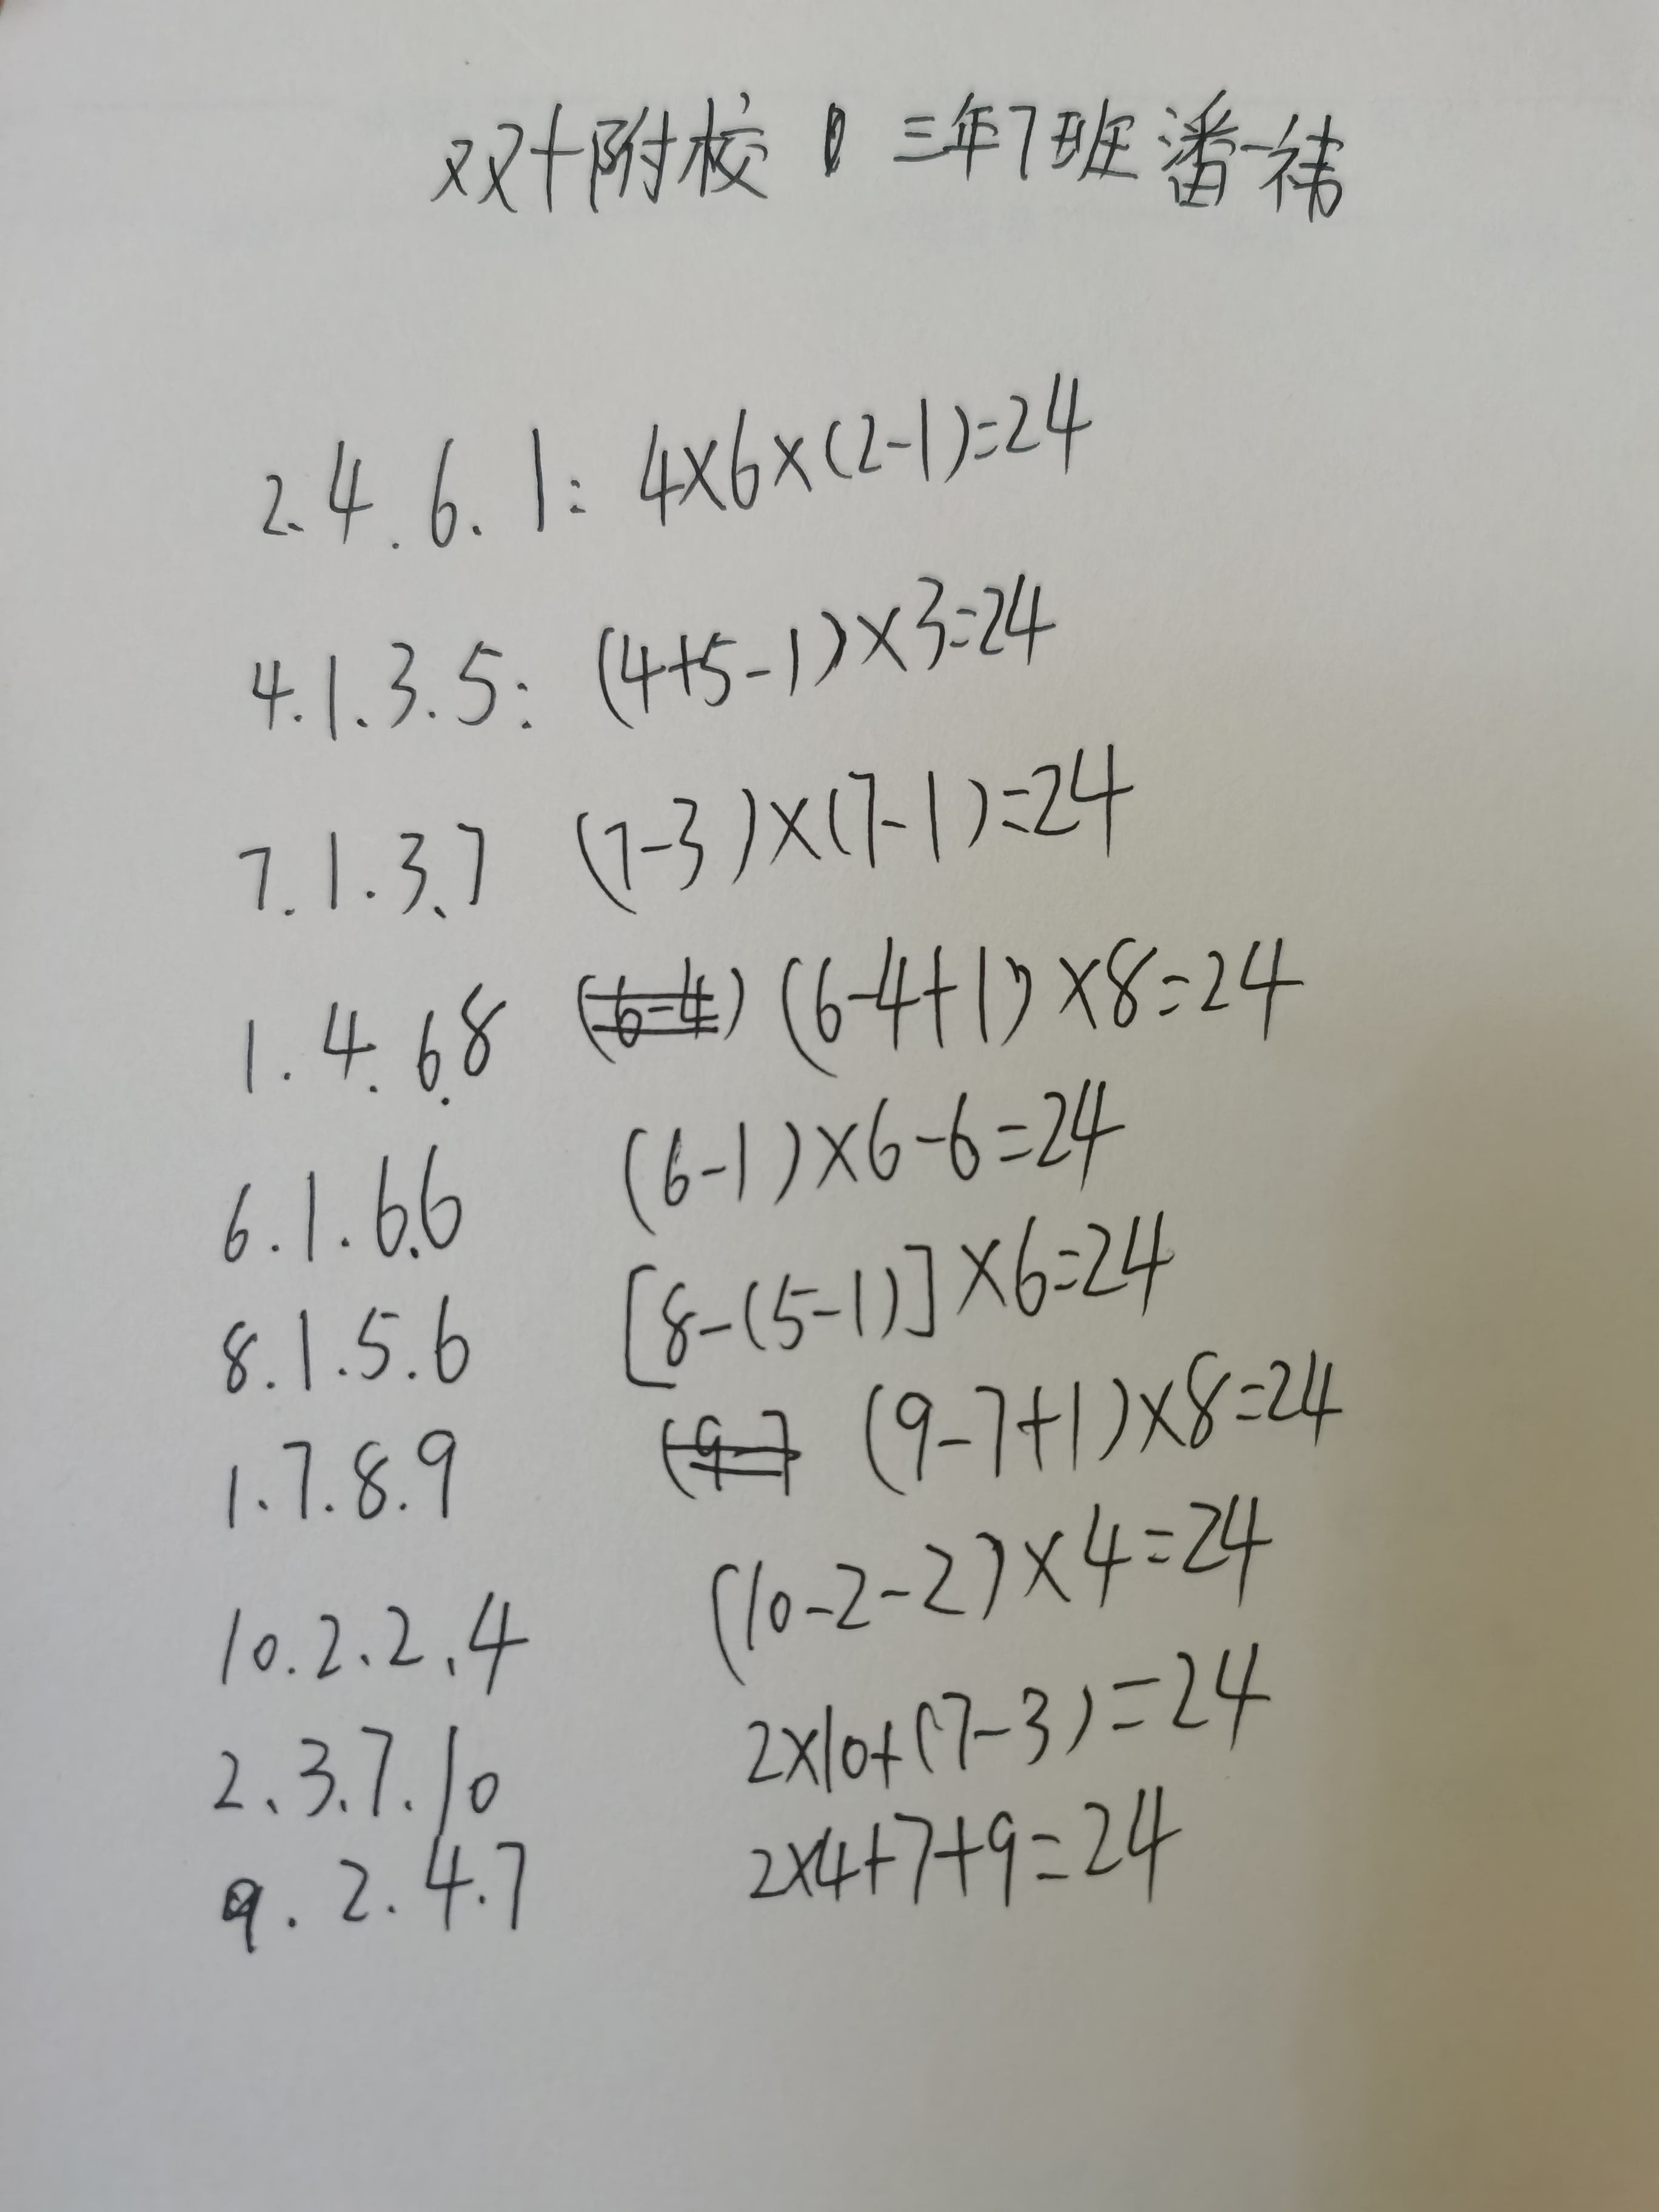 双十附校 三年7班潘一祎
2.4.6.1: 4×6×(2-1)=24
4.1.3.5: (4+5-1)×3=24
7.1.3.7 (7-3)×(7-1)=24
1.4.6.8 (6-4) (6-4+1)×8=24
6.1.6.6 (6-1)×6-6=24
8.1.5.6 [8-(5-1)]×6=24
1.7.8.9 (9-7 (9-7+1)×8=24
10.2.2.4 (10-2-2)×4=24
2.3.7.10 2×10+(7-3)=24
9.2.4.7 2×4+7+9=24